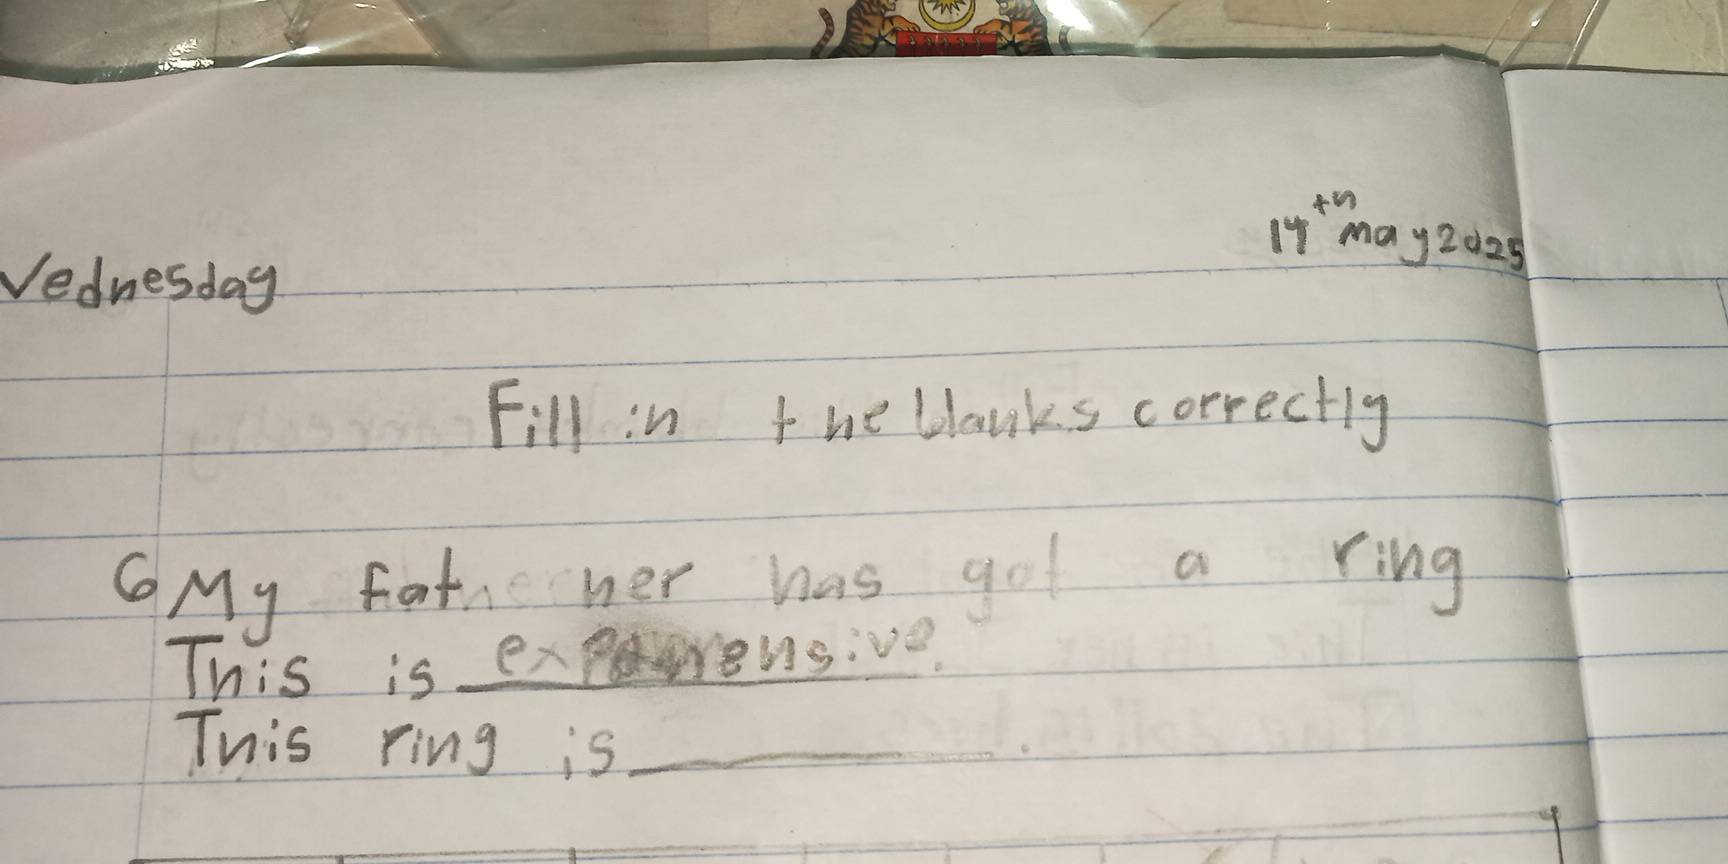 14th May 2025
Wednesday
Fill in the blanks correctly
6 My father her has got a ring
This is expensive.
This ring is ________.